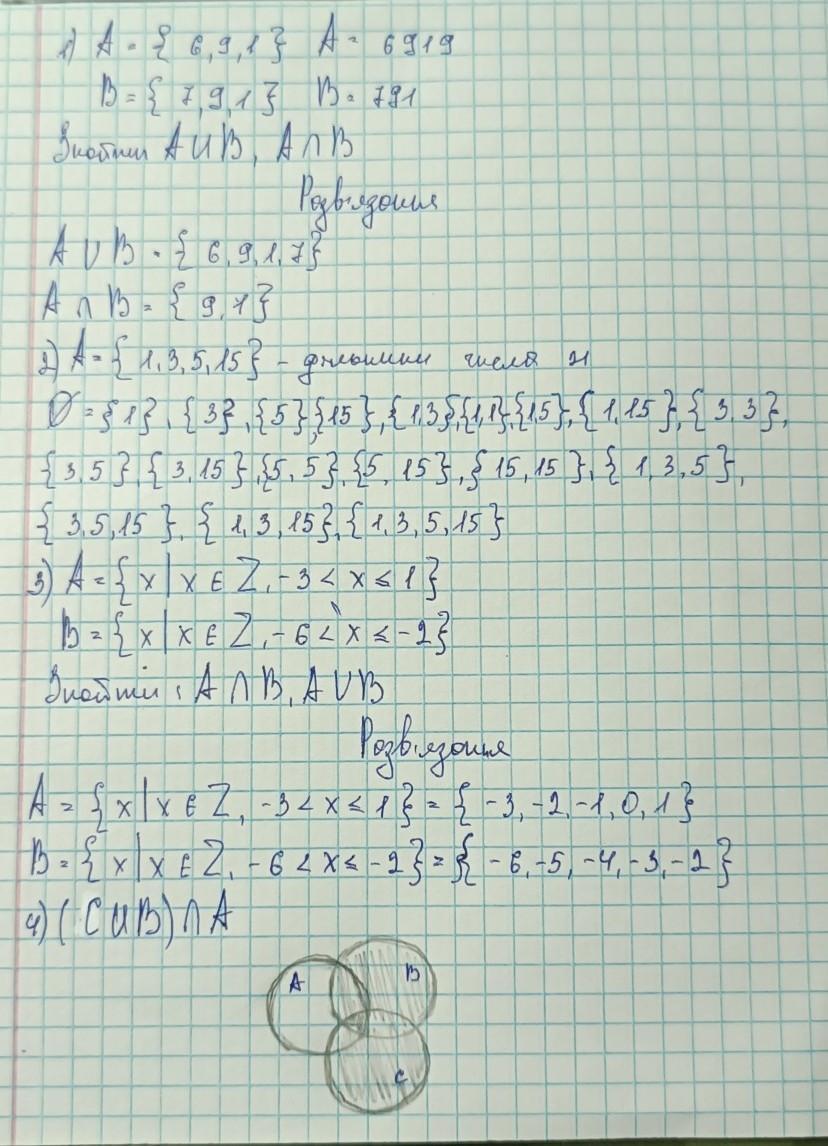 1) A = { 6, 9, 1 } A = 6919
B = { 7, 9, 1 } B = 791
Знайти A U B, A ∩ B
Розв'язання
A U B = { 6, 9, 1, 7 }
A ∩ B = { 9, 1 }
2) A = { 1, 3, 5, 15 } - дільники числа
Ø = { 1 }, { 3 }, { 5 }, { 15 }, { 1, 3 }, { 1, 1 }, { 1, 5 }, { 1, 15 }, { 3, 3 },
{ 3, 5 }, { 3, 15 }, { 5, 5 }, { 5, 15 }, { 15, 15 }, { 1, 3, 5 },
{ 3, 5, 15 }, { 1, 3, 15 }, { 1, 3, 5, 15 }
3) A = { x | x ∈ Z, -3 < x ≤ 1 }
B = { x | x ∈ Z, -6 < x ≤ -2 }
Знайти : A ∩ B, A U B
Розв'язання
A = { x | x ∈ Z, -3 < x ≤ 1 } = { -3, -2, -1, 0, 1 }
B = { x | x ∈ Z, -6 < x ≤ -2 } = { -6, -5, -4, -3, -2 }
4) ( C U B ) ∩ A
A B
C